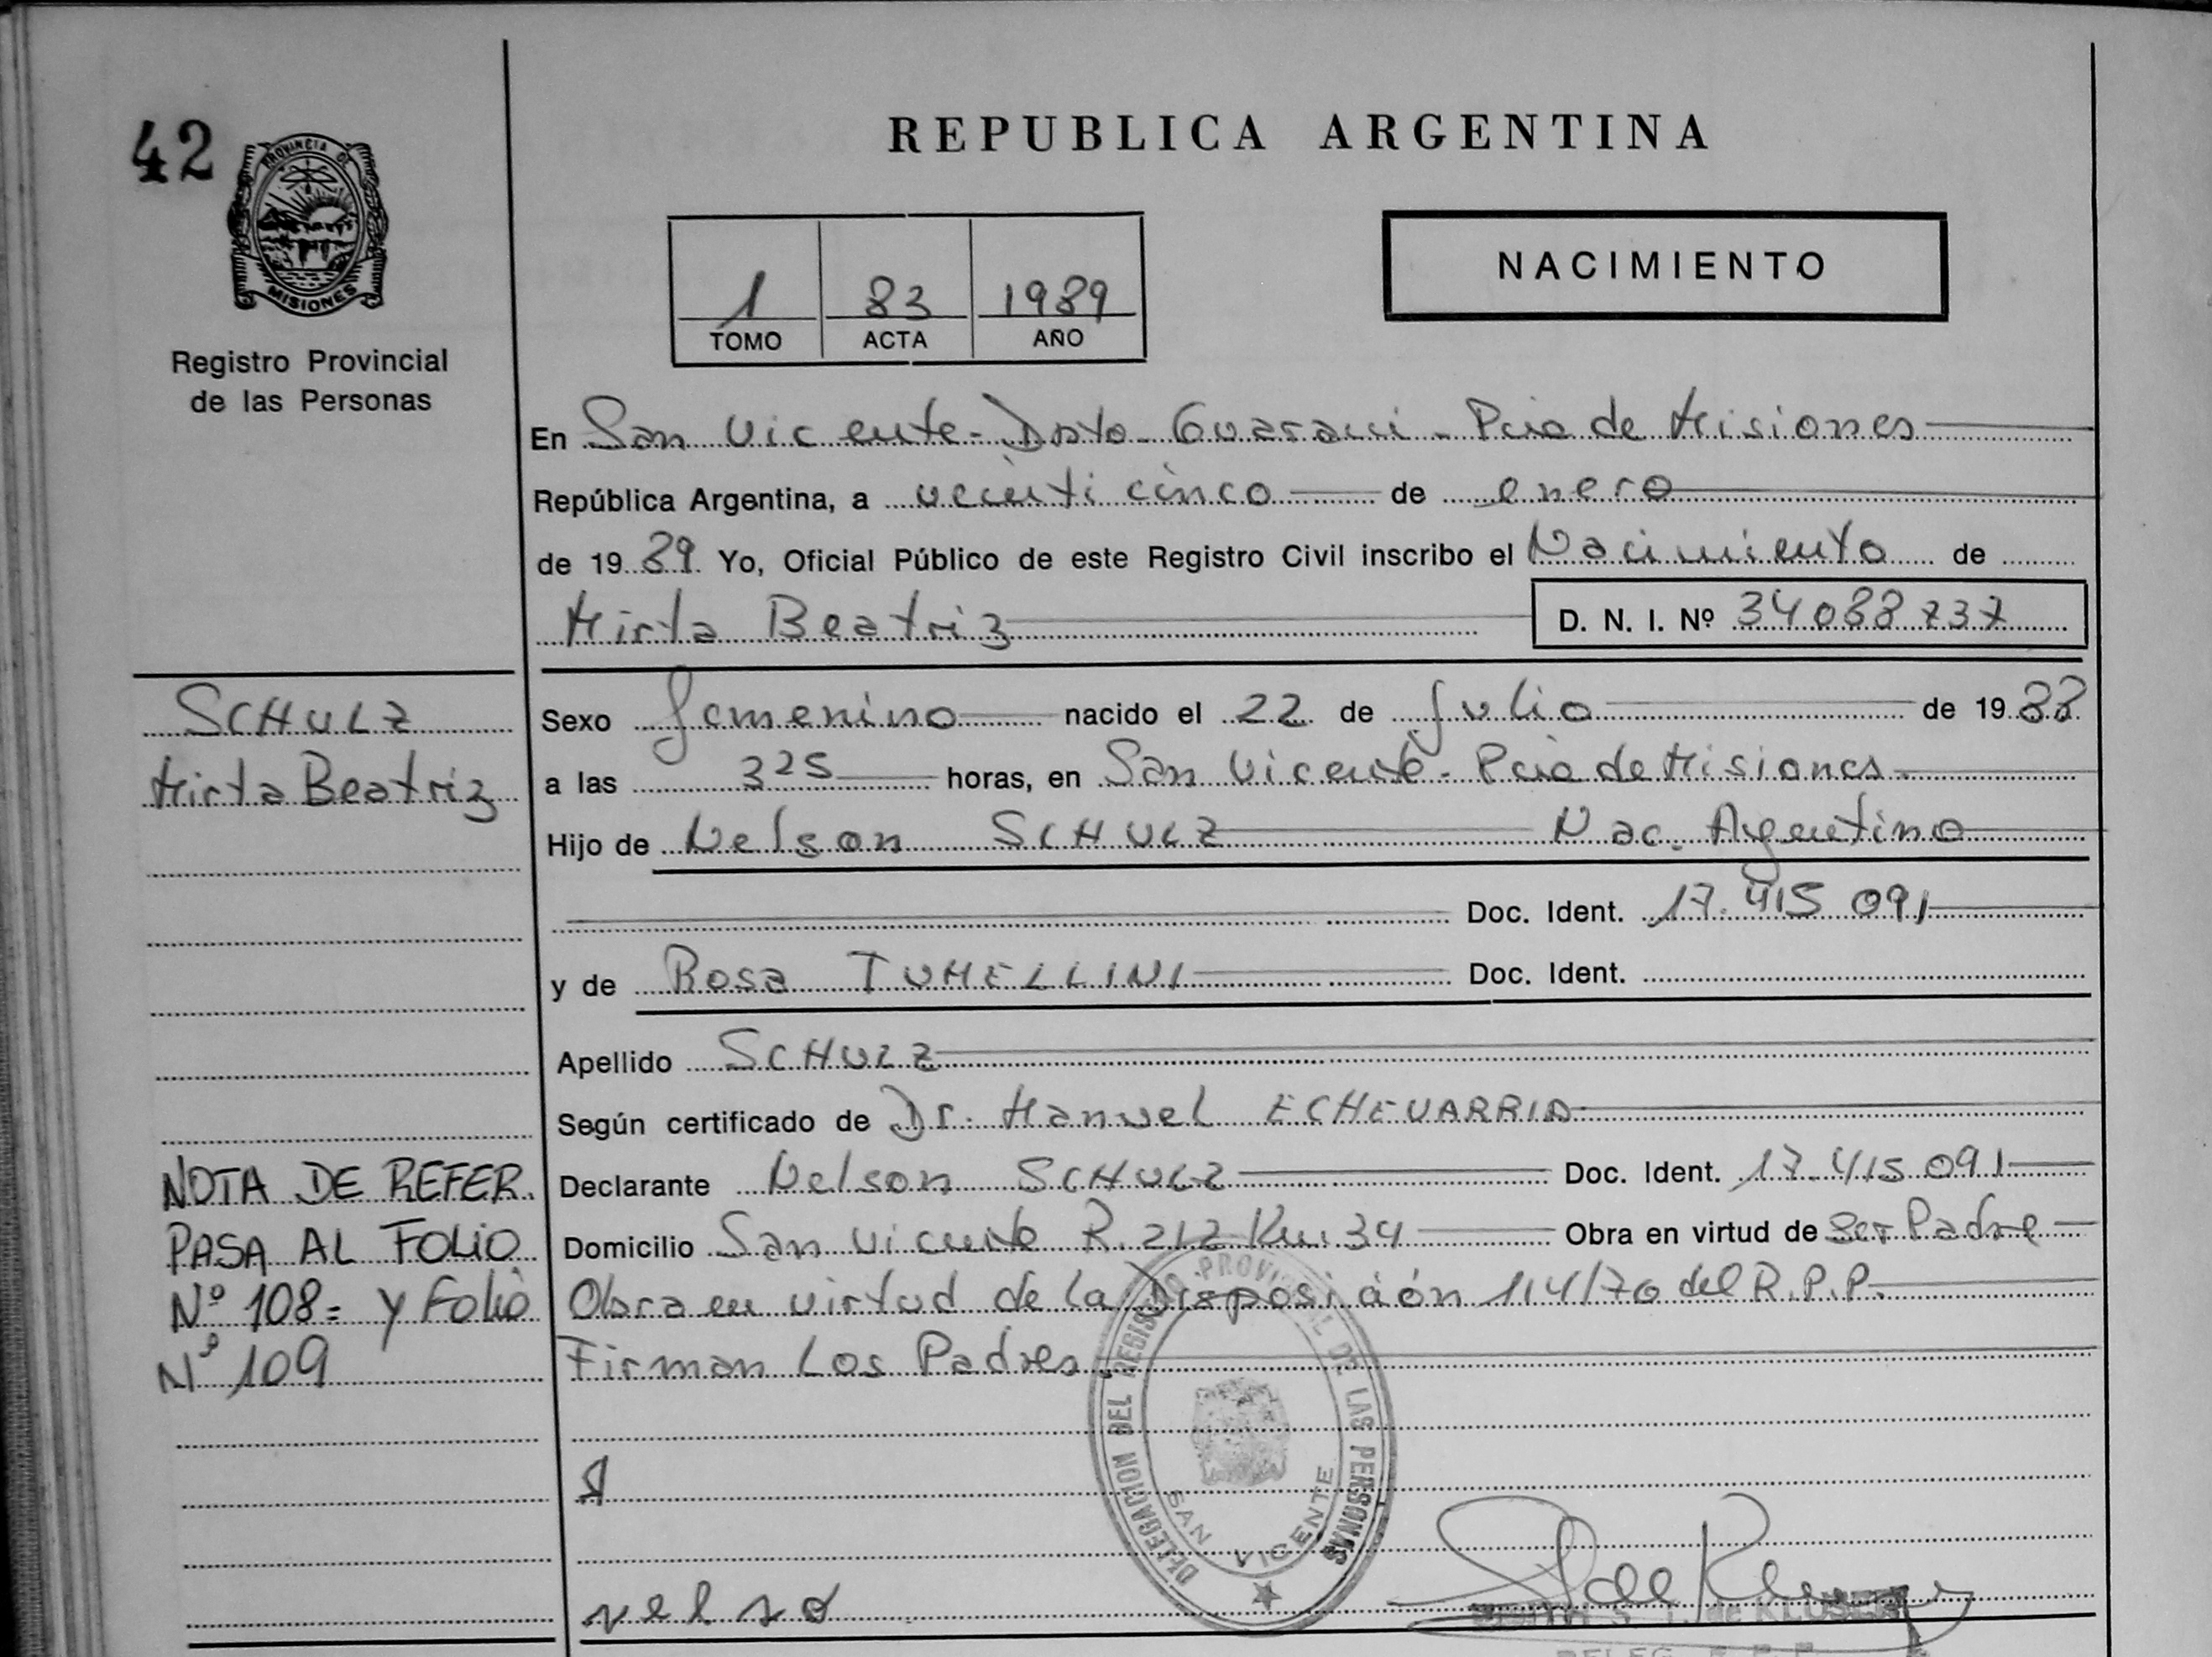 42
PROVINCIA DE
MISIONES
Registro Provincial
de las Personas
REPUBLICA ARGENTINA
1 83 1989
TOMO ACTA AÑO
NACIMIENTO
En San Vicente - Dpto Guarani - Pcia de Misiones
República Argentina, a veinti cinco de enero
de 19 89 Yo, Oficial Público de este Registro Civil inscribo el Nacimiento de
Mirta Beatriz D. N. I. Nº 34088737
SCHULZ
Mirta Beatriz
Sexo femenino nacido el 22 de Julio de 19 88
a las 3 25 horas, en San Vicente - Pcia de Misiones
Hijo de Nelson SCHULZ Nac. Argentino
Doc. Ident. 17.415 091
y de Rosa TUMELLINI Doc. Ident.
Apellido SCHULZ
Según certificado de Dr. Manuel ECHEVARRIA
Declarante Nelson SCHULZ Doc. Ident. 17.415 091
Domicilio San Vicente R. 212 Km. 34 Obra en virtud de Ser Padre
Obra en virtud de la Disposición 114/70 del R.P.P.
Firman Los Padres
NOTA DE REFER.
PASA AL FOLIO
Nº 108= y Folio
Nº 109
DELEGACION DEL REGISTRO PROVINCIAL DE LAS PERSONAS
SAN VICENTE